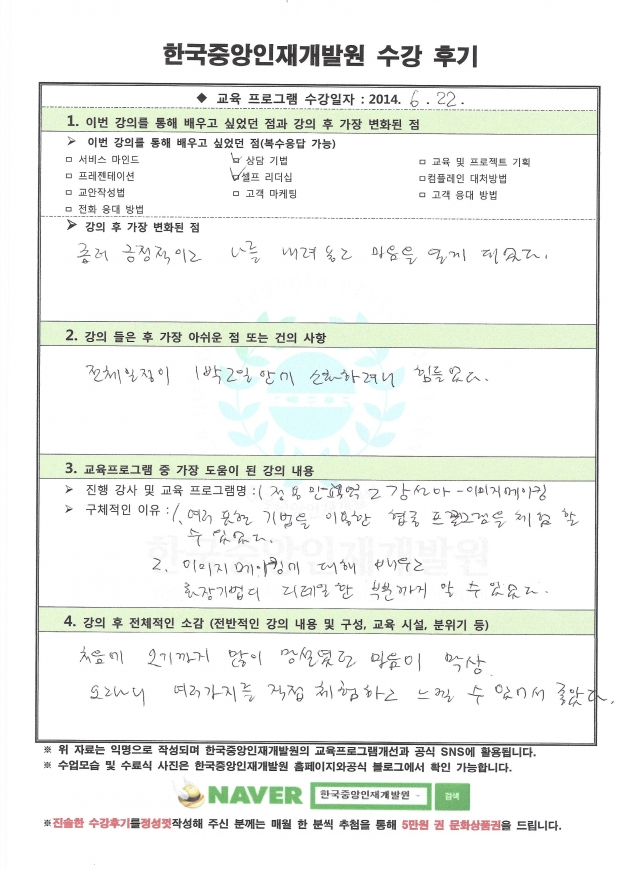 한국중앙인재개발원 수강 후기
◆ 교육 프로그램 수강일자 : 2014. 6. 22.
1. 이번 강의를 통해 배우고 싶었던 점과 강의 후 가장 변화된 점
➤ 이번 강의를 통해 배우고 싶었던 점(복수응답 가능)
□ 서비스 마인드 ☑ 상담 기법 □ 교육 및 프로젝트 기획
□ 프레젠테이션 ☑ 셀프 리더십 □ 컴플레인 대처방법
□ 교안작성법 □ 고객 마케팅 □ 고객 응대 방법
□ 전화 응대 방법
➤ 강의 후 가장 변화된 점
좀더 긍정적이고 나를 내려놓고 마음을 열게 되었다.
2. 강의 들은 후 가장 아쉬운 점 또는 건의 사항
전체일정이 1박2일 안에 소화하려니 힘들었다.
3. 교육프로그램 중 가장 도움이 된 강의 내용
➤ 진행 강사 및 교육 프로그램명 : 1 2 강선아 - 이미지메이킹
➤ 구체적인 이유 : 1. 여러 표현 기법을 이용한 협동 프로그램을 체험 할
수 있었다.
2. 이미지 메이킹에 대해 배우고
화장기법의 디테일한 부분까지 알 수 있었다.
4. 강의 후 전체적인 소감 (전반적인 강의 내용 및 구성, 교육 시설, 분위기 등)
처음에 오기까지 많이 망설였던 마음이 막상
오고나니 여러가지를 직접 체험하고 느낄 수 있어서 좋았다.
한국중앙인재개발원
※ 위 자료는 익명으로 작성되며 한국중앙인재개발원의 교육프로그램개선과 공식 SNS에 활용됩니다.
※ 수업모습 및 수료식 사진은 한국중앙인재개발원 홈페이지와공식 블로그에서 확인 가능합니다.
NAVER 한국중앙인재개발원 검색
※진솔한 수강후기를정성껏작성해 주신 분께는 매월 한 분씩 추첨을 통해 5만원 권 문화상품권을 드립니다.